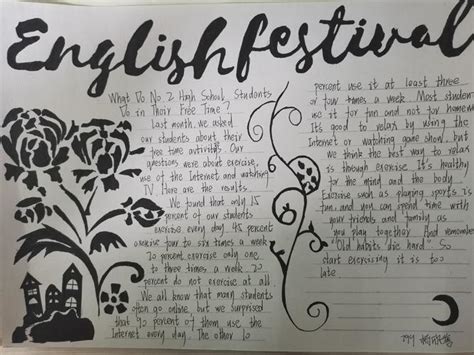 English festival
What Do No.2 High School Students
Do in Their Free Time?
Last month, we asked
our students about their
free time activities. Our
questions were about exercise,
use of the Internet and watching
TV. Here are the results.
We found that only 15
percent of our students
exercise every day. 45 percent
exercise four to six times a week.
20 percent exercise only one
to three times a week. 20
percent do not exercise at all.
We all know that many students
often go online but we surprised
that 90 percent of them use the
Internet every day. The other 10
percent use it at least three
or four times a week. Most student
use it for fun and not for homework
It's good to relax by using the
Internet or watching game show, but
we think the best way to relax
is though exercise. It's healthy
for the mind and the body.
Exercise such as playing sports is
fun, and you can spend time with
your friends and family as
you play together. And remember
"Old habits die hard". So
start exercising it is too
late.